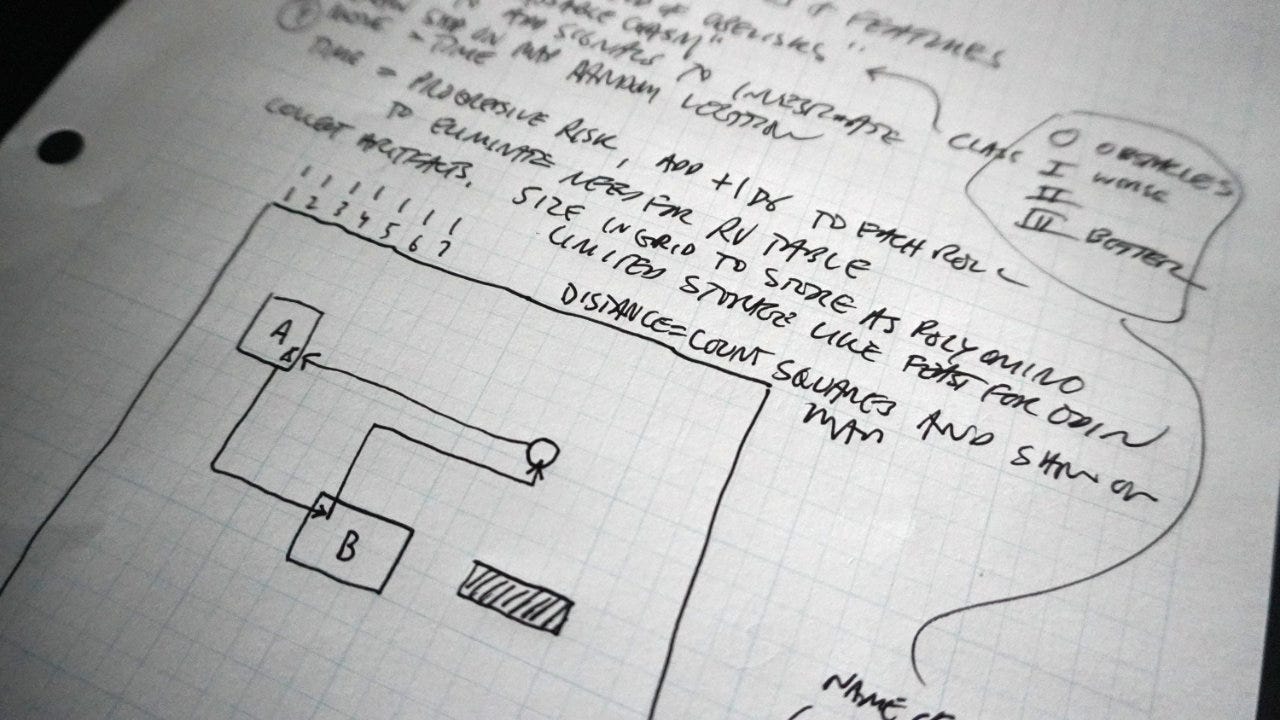 & FEATURES
OF OBELISKS"
CHASM"
ADD SIGNALS TO INVESTIGATE
MOVE = TIME RANDOM LOCATION
TIME = PROGRESSIVE RISK, ADD +1D6 TO EACH ROLL
TO ELIMINATE NEED FOR RV TABLE
COLLECT ARTIFACTS. SIZE IN GRID TO STORE AS POLYOMINO
LIMITED STORAGE LIKE FEAST FOR ODIN
DISTANCE = COUNT SQUARES AND SHOW ON
MAP
CLASS O OBSTACLES
I WORSE
II
III BETTER
1 2 3 4 5 6 7
A
B
NAME OF